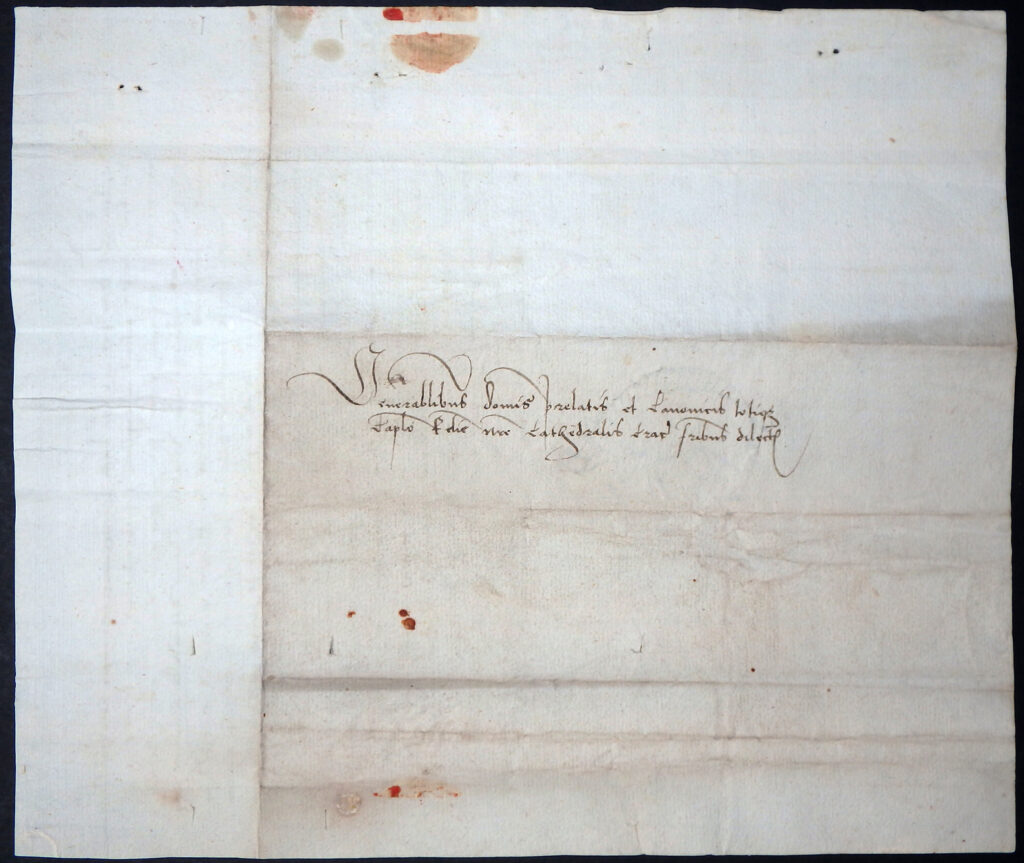 Venerablibus domis prelatis et Canonicis totiqz
Caplo Ecclie nre Cathedralis Crac fribus dilectis